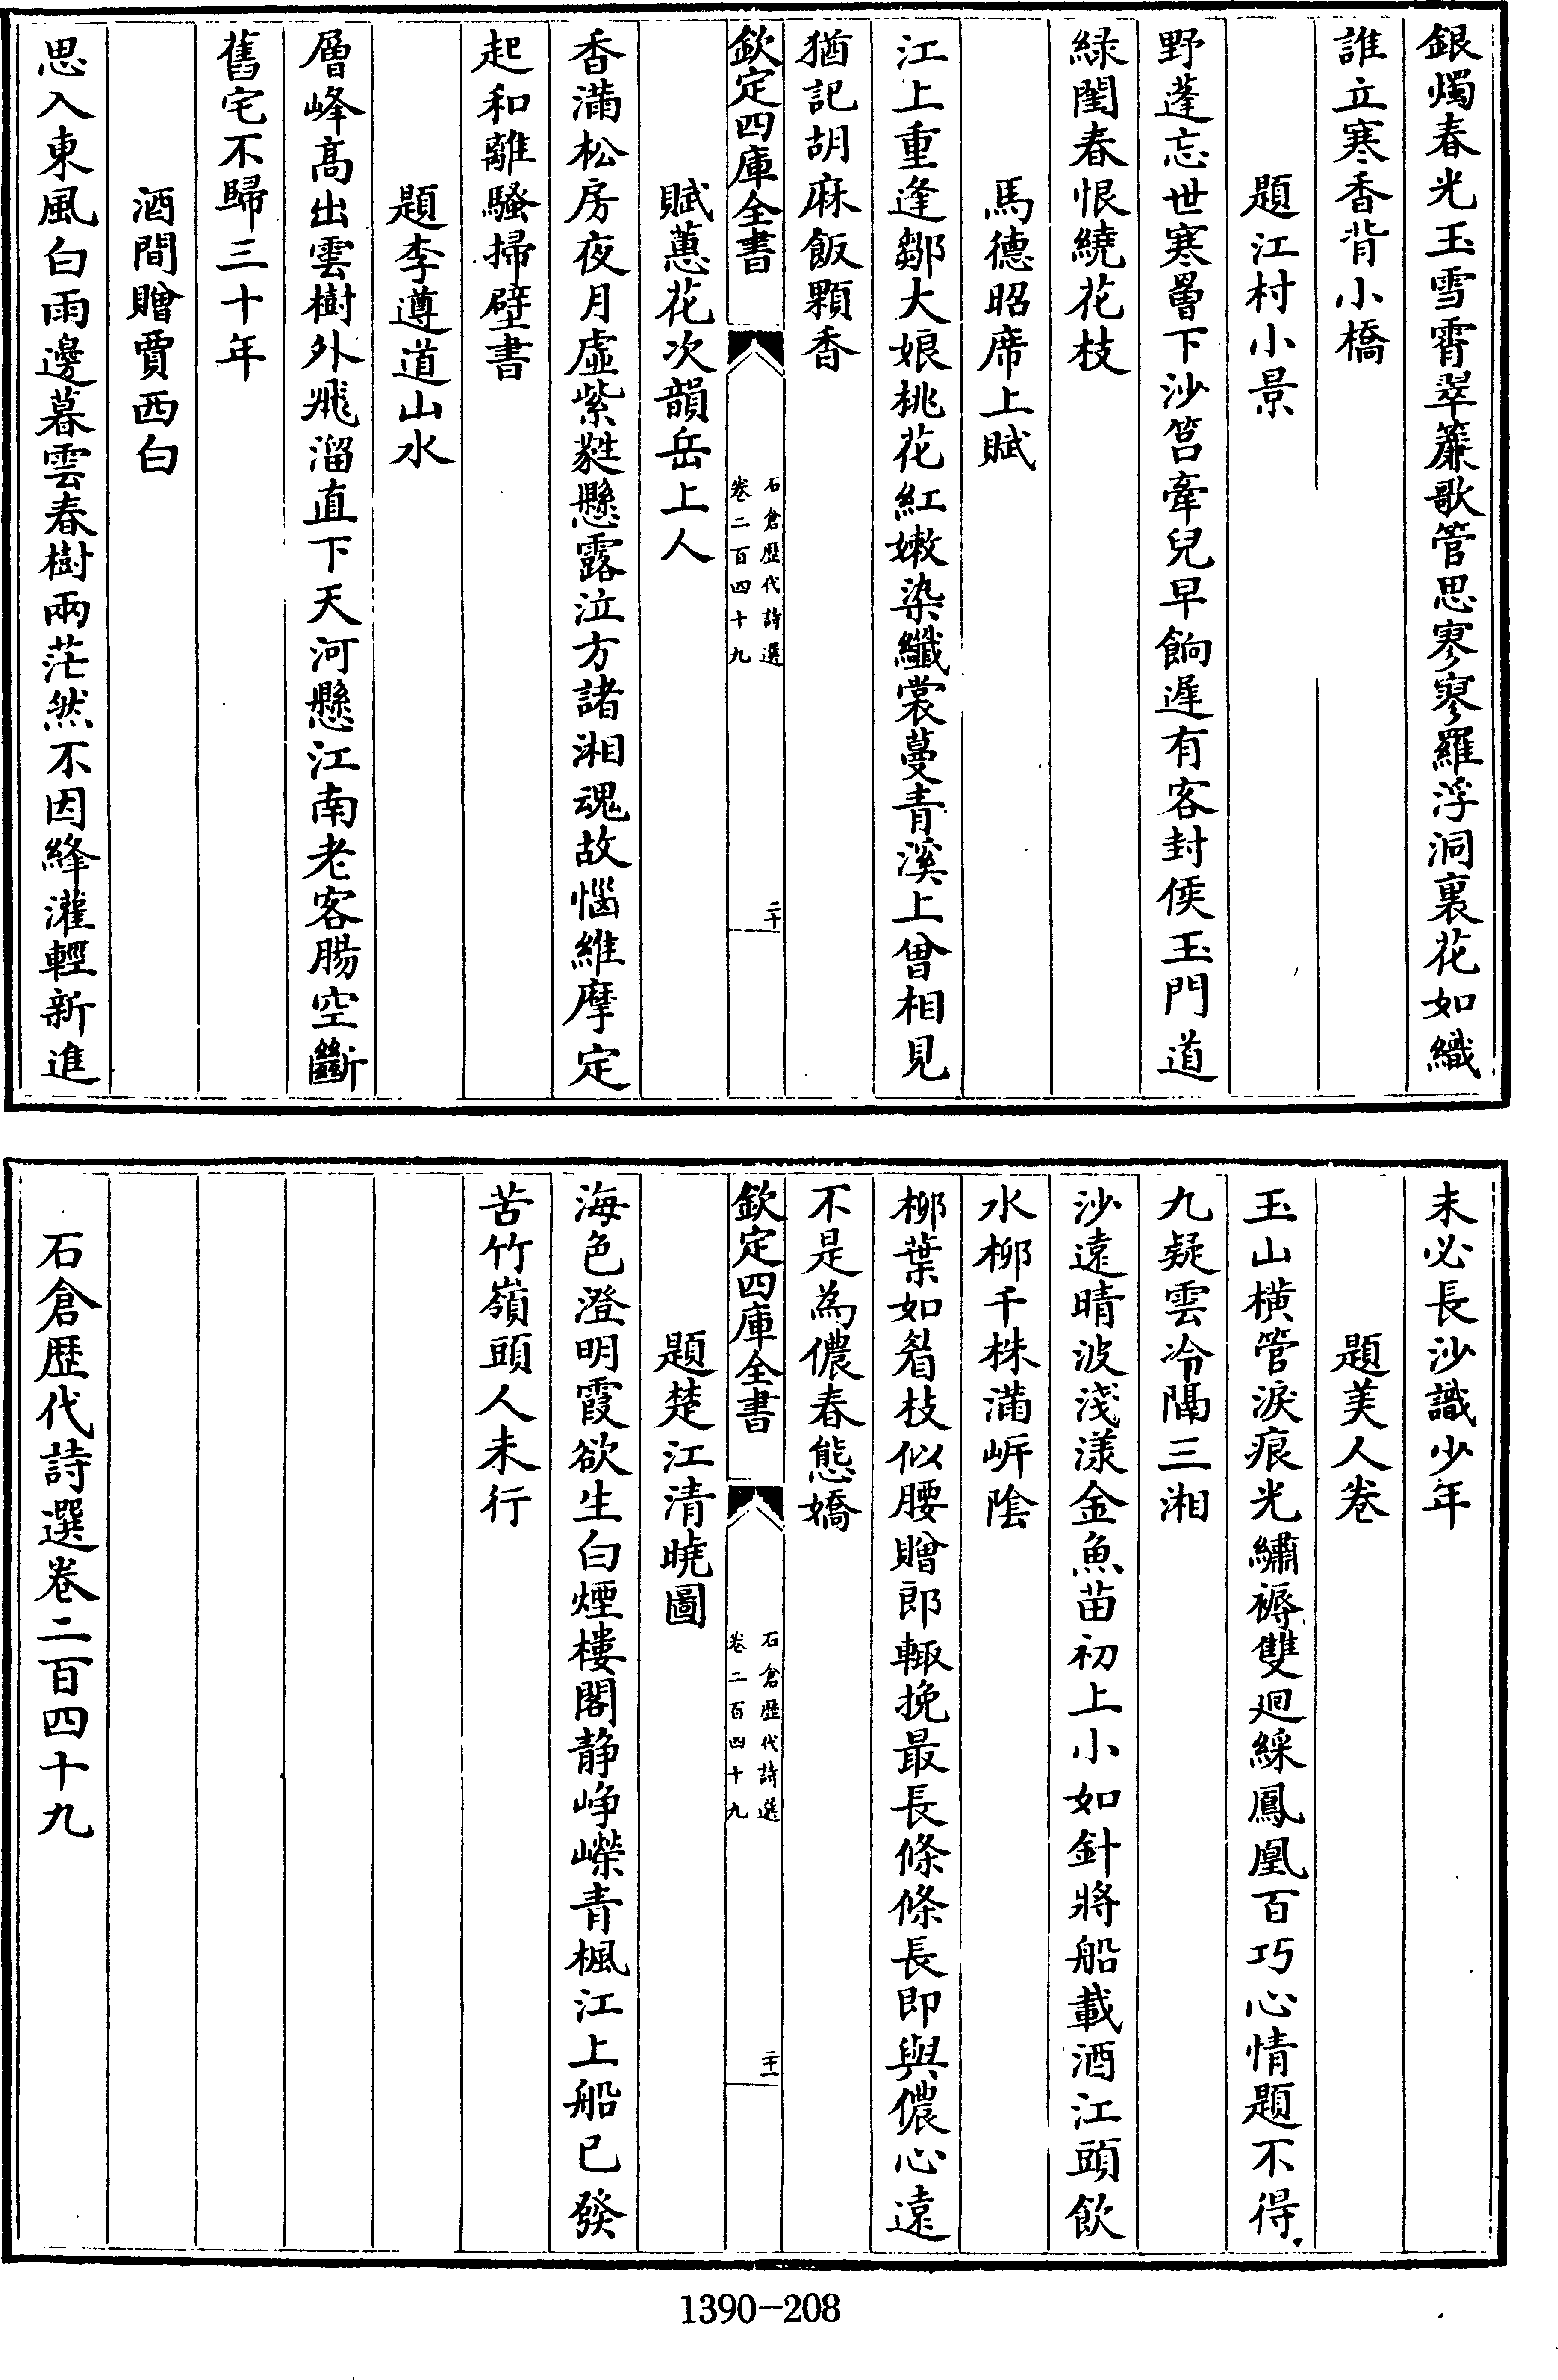 銀燭春光玉雪霄翠簾歌管思寥寥羅浮洞裏花如織
誰立寒香背小橋
題江村小景
野蓬忘世寒罾下沙筥牽兒早餉遲有客封侯玉門道
綠閨春恨繞花枝
馬德昭席上賦
江上重逢鄒大娘桃花紅嫩染纖裳蔓青溪上曾相見
猶記胡麻飯顆香
欽定四庫全書
石倉歷代詩選
卷二百四十九
二十
賦蕙花次韻岳上人
香滿松房夜月虛紫蕤懸露泣方諸湘魂故惱維摩定
起和離騷掃壁書
題李遵道山水
層峰高出雲樹外飛溜直下天河懸江南老客腸空斷
舊宅不歸三十年
酒間贈賈西白
思入東風白雨邊暮雲春樹兩茫然不因絳灌輕新進
未必長沙識少年
題美人卷
玉山橫管淚痕光繡褥雙迴綵鳳凰百巧心情題不得
九疑雲冷隔三湘
沙遠晴波淺漾金魚苗初上小如針將船載酒江頭飲
水柳千株滿岍陰
柳葉如眉枝似腰贈郎輙挽最長條條長即與儂心遠
不是為儂春態嬌
欽定四庫全書
石倉歷代詩選
卷二百四十九
二十一
題楚江清曉圖
海色澄明霞欲生白煙樓閣靜崢嶸青楓江上船已發
苦竹嶺頭人未行
石倉歷代詩選卷二百四十九
1390-208